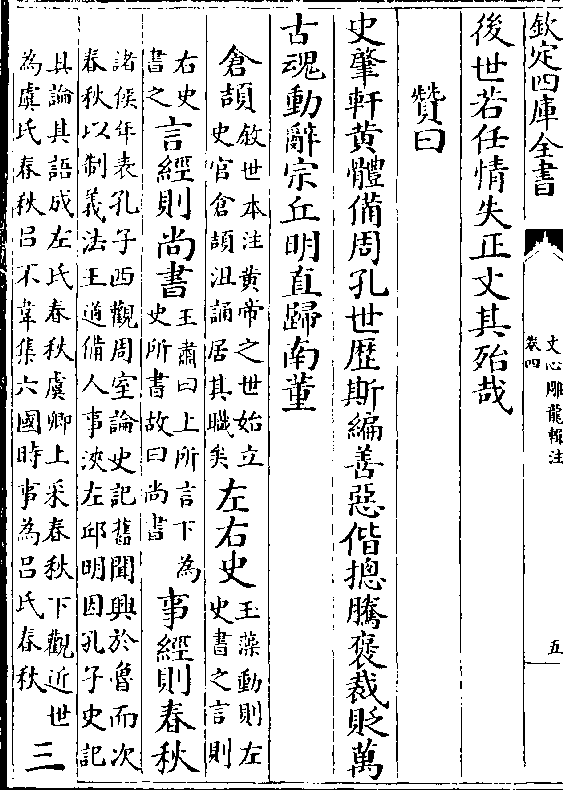 欽定四庫全書
文心雕龍輯注
卷四
五
後世若任情失正文其殆哉
贊曰
史肇軒黃體備周孔世歴斯編善惡偕摠騰褒裁貶萬
古魂動辭宗丘明直歸南董
倉頡
敘世本注黃帝之世始立
史官倉頡沮誦居其職矣
左右史
玉藻動則左
史書之言則
右史
書之
言經則尚書
王肅曰上所言下為
史所書故曰尚書
事經則春秋
諸侯年表孔子西觀周室論史記舊聞興於魯而次
春秋以制義法王道備人事浹左邱明因孔子史記
具論其語成左氏春秋虞卿上采春秋下觀近世
為虞氏春秋呂不韋集六國時事為呂氏春秋
三